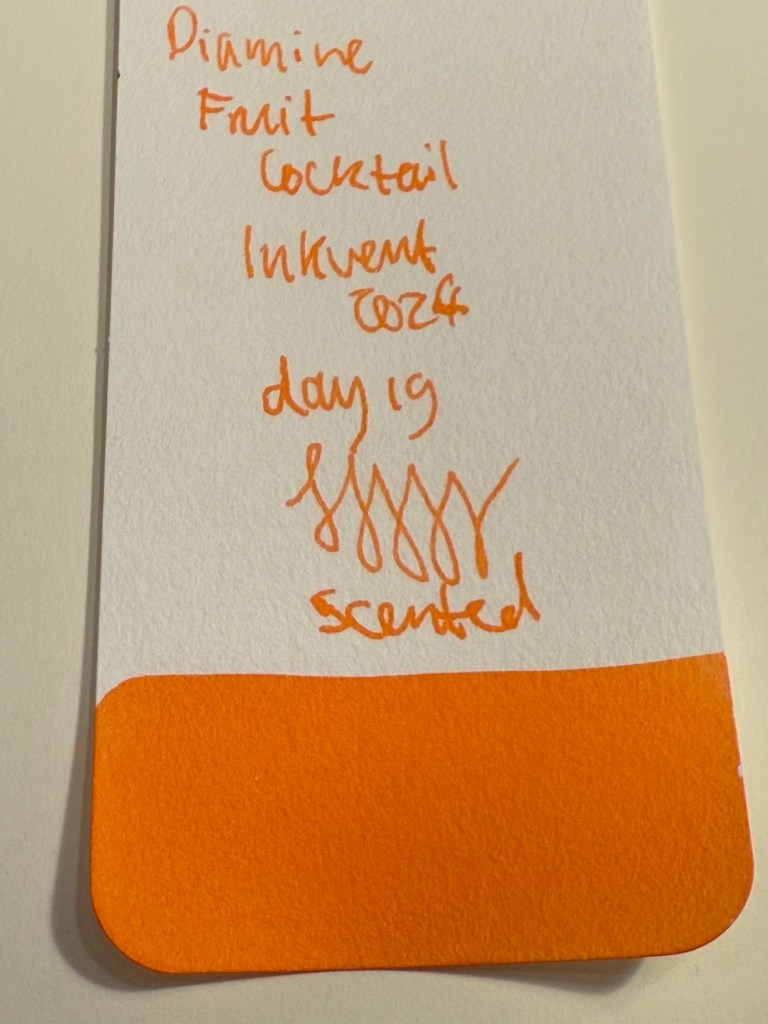 Diamine
Fruit
Cocktail
Inkvent
2024
day 19
scented